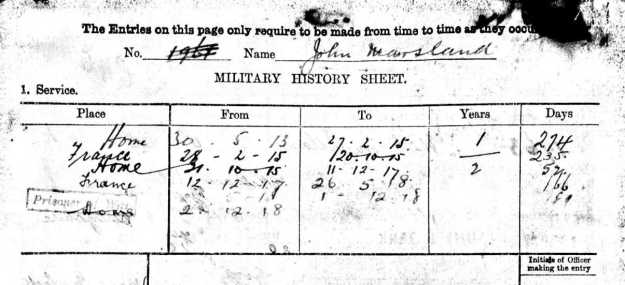 The Entries on this page only require to be made from time to time as they occu
No. 1961 Name John Marsland
MILITARY HISTORY SHEET.
1. Service.
Place From To Years Days
Home 30 . 5 . 13 27 . 2 . 15. 1 274
France 28 - 2 - 15 20.10.15 235
Home 21. 10.15 11-12-17 2 52
France 12. 12.17 26 5 18 166
Prisoner 18 1 - 12.18
Home 2 . 12.18
Initials of Officer
making the entry